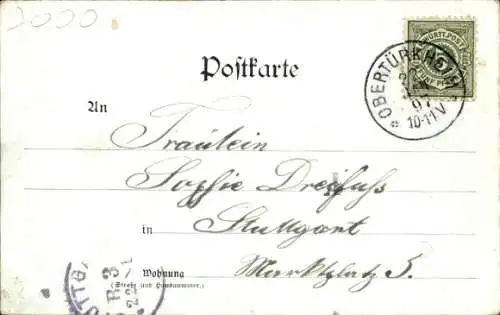 2000
WÜRTT. POST
FÜNF PF
OBERTÜRKHEIM
97
10-11 V
Postkarte
An
Fräulein
Sophie Dreifuss
in Stuttgart
Wohnung Marktplatz 5.
(Straße und Hausnummer.)
TTG
3
22